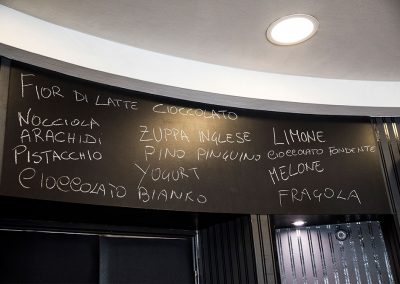 FIOR DI LATTE CIOCCOLATO
NOCCIOLA
ARACHIDI ZUPPA INGLESE LIMONE
PISTACCHIO PINO PINGUINO CIOCCOLATO FONDENTE
YOGURT MELONE
CIOCCOLATO BIANKO FRAGOLA